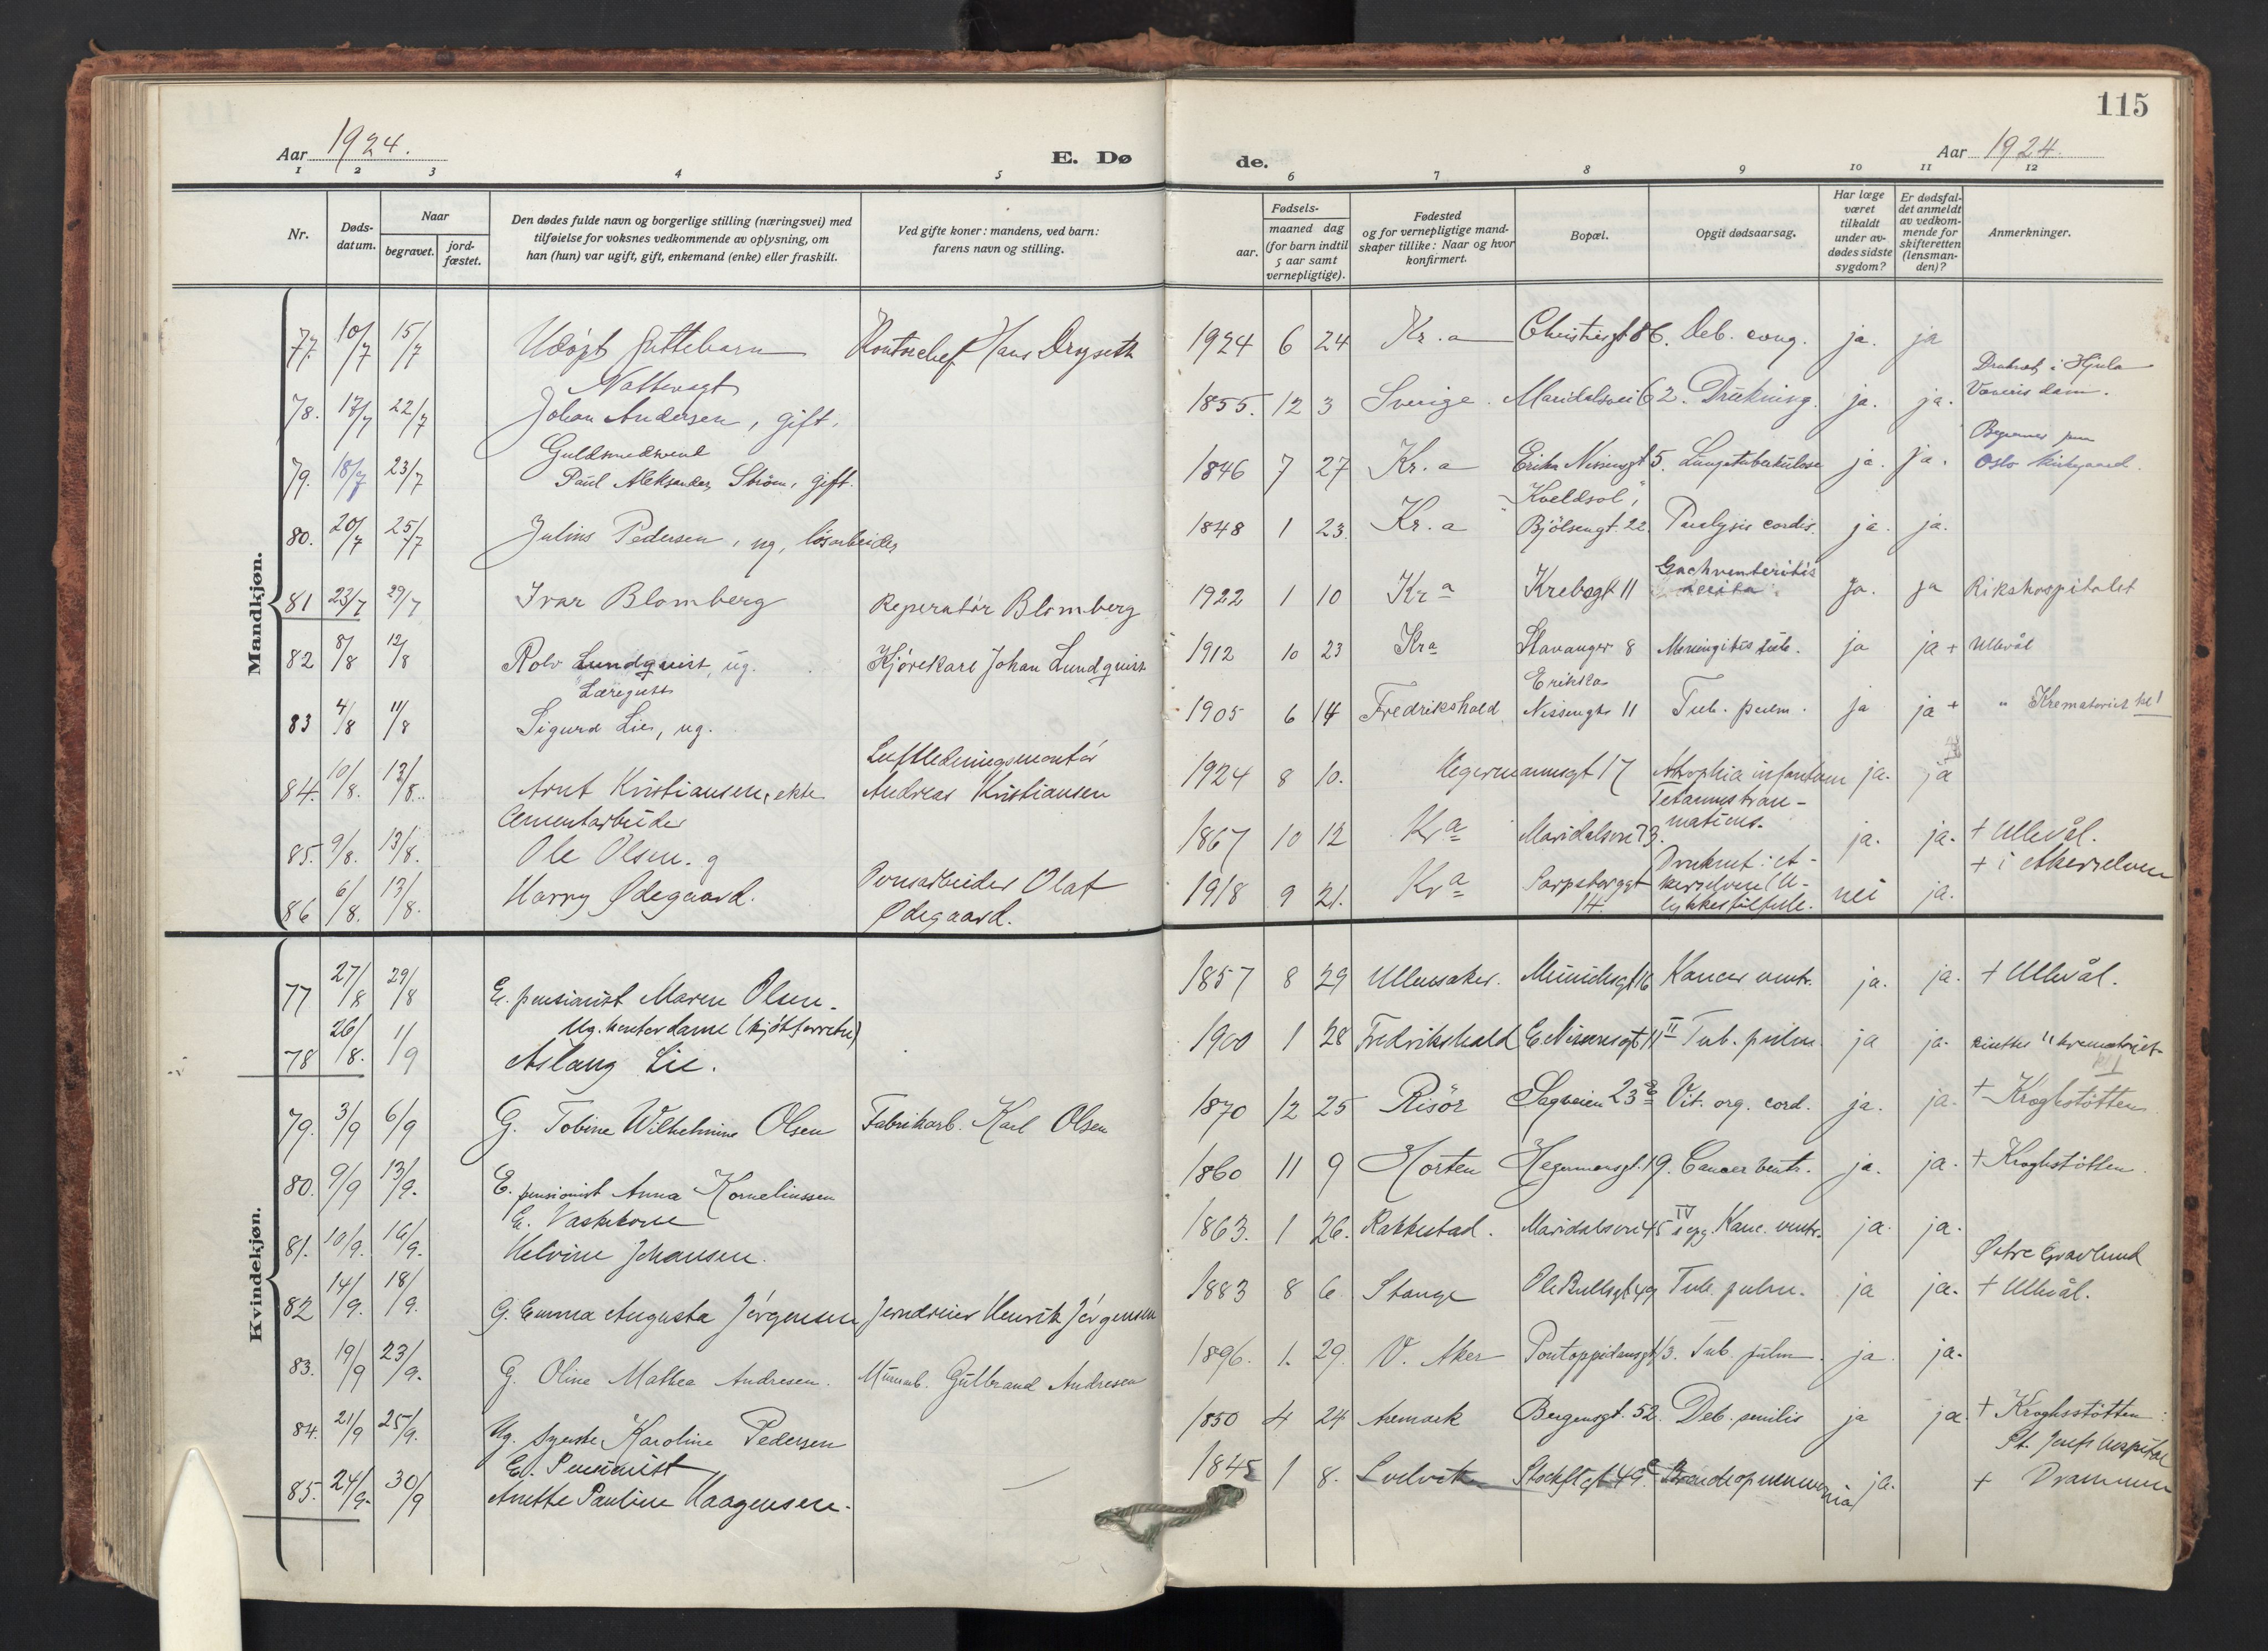 115
Aar 1924. E. Dø de. Aar 1924.
1 2 3 4 5 6 7 8 9 10 11 12
Nr.
Døds-
datum.
Naar
begravet.
jord-
fæstet.
Den dødes fulde navn og borgerlige stilling (næringsvei) med
tilføielse for voksnes vedkommende av oplysning, om
han (hun) var ugift, gift, enkemand (enke) eller fraskilt.
Ved gifte koner: mandens, ved barn:
farens navn og stilling.
Fødsels-
aar.
maaned dag
(for barn indtil
5 aar samt
vernepligtige).
Fødested
og for vernepligtige mand-
skaper tillike: Naar og hvor
konfirmert.
Bopæl.
Opgit dødsaarsag.
Har læge
været
tilkaldt
under av-
dødes sidste
sygdom?
Er dødsfal-
det anmeldt
av vedkom-
mende for
skifteretten
(lensman-
den)?
Anmerkninger.
Mandkjøn.
77. 10/7 15/7 Udøpt guttebarn Kontorchef Hans Drogseth 1924 6 24 Kr.a 86. Deb. cong. ja. ja
Nattevagt Druknet i Hjula
78. 17/7 22/7 Johan Andersen, gift. 1855. 12 3 Sverige. Maridalsvei 62. Drukning. ja. ja. Væveris dam.
Guldsmedsvend
79. 18/7 23/7 Paul Aleksander Strøm, gift. 1846 7 27 Kr.a Erika Nissensgt 5. Lungetuberkulose ja. ja. Oslo kirkegaard.
"Kveldsol",
80. 20/7 25/7 Julius Pedersen, ug, løsarbeider 1848 1 23. Kr.a Bjölsengt. 22. Paralysis cordis. ja. ja.
81 23/7 29/7 Ivar Blomberg Reperatör Blomberg 1922 1 10 Kra Krebsgt 11 ja. ja Rikshospitalet
82 8/8 12/8 Rolv Lundquist, ug. Kjörekarl Johan Lundquist 1912 10 23 Kra Stavanger 8 Meningitis tub. ja ja + Ullevål
Læregutt Erikka
83 4/8 11/8 Sigurd Lie, ug. 1905 6 14 Fredrikshald Nissengt 11 Tub. pulm. ja ja + " Krematoriet kl 1
Luftledningsmontør
84. 10/8. 13/8. Arnt Kristiansen, ekte Andreas Kristiansen 1924 8 10. Hegermannsgt 17 Atrophia infantum ja. ja
Cementarbeider Tetanus trau-
maticus.
85. 9/8. 13/8. Ole Olsen. g 1867 10 12 Kra Maridalsvei 73. ja. ja. + Ullevål.
86 6/8. 13/8. Harry Ødegaard. Olaf 1918 9 21. Kra Sarpsborggt 14. Druknet i A-
kerselven (U-
lykkestilfelle. nei ja. + i Akerselven
Ødegaard.
Kvindekjøn.
77 27/8 29/8 E. pensionist Maren Olsen. 1857 8 29 Ullensaker. 16 Kancer ventr. ja. ja. + Ullevål.
Ug. kontordame (kjøtforretn)
78 26/8. 1/9 Aslaug Lie. 1900 1 28 Fredrikshald E. Nissensgt 11 II Tub. pulm ja ja. krematoriet
kl 1
79. 3/9 6/9 G. Tobine Wilhelmine Olsen Fabrikarb. Karl Olsen 1870 12 25 Risör Sagveien 23 Vit. org. cord. ja. ja. + Kroghstötten
80. 9/9 13/9. E. pensionist Anna Korneliussen 1860 11 9 Horten Hegermansgt. 19. Cancer ventr. ja. ja. + Kroghstötten.
E. Vaskekone
81. 10/9. 16/9. Helvine Johansen. 1863. 1 26. Rakkestad. Maridalsvei 45 IV opg. Kanc. ventr. ja. ja.
Østre Gravlund
82 14/9. 18/9. G. Emma Augusta Jörgensen Jerndreier Henrik Jörgensen 1883 8 6. Stange Ole Bullsgt 49 Tub. pulm. ja ja. + Ullevål.
83. 19/9 23/9. G. Oline Mathea Andresen. Murarb. Gulbrand Andresen 1896. 1. 29. V. Aker Pontoppidansgt 13. Tub. pulm. ja. ja.
84. 21/9 25/9. Ug. Syerske Karoline Pedersen 1850 4 24 Aremark Bergensgt. 52. Deb. senilis ja ja. + Kroghsstötten
E. Pensionist St. Josefs hospital
85. 24/9. 30/9 Anette Pauline Haagensen. 1845 1 8. Stockfletgt 49. ja. + Drammen